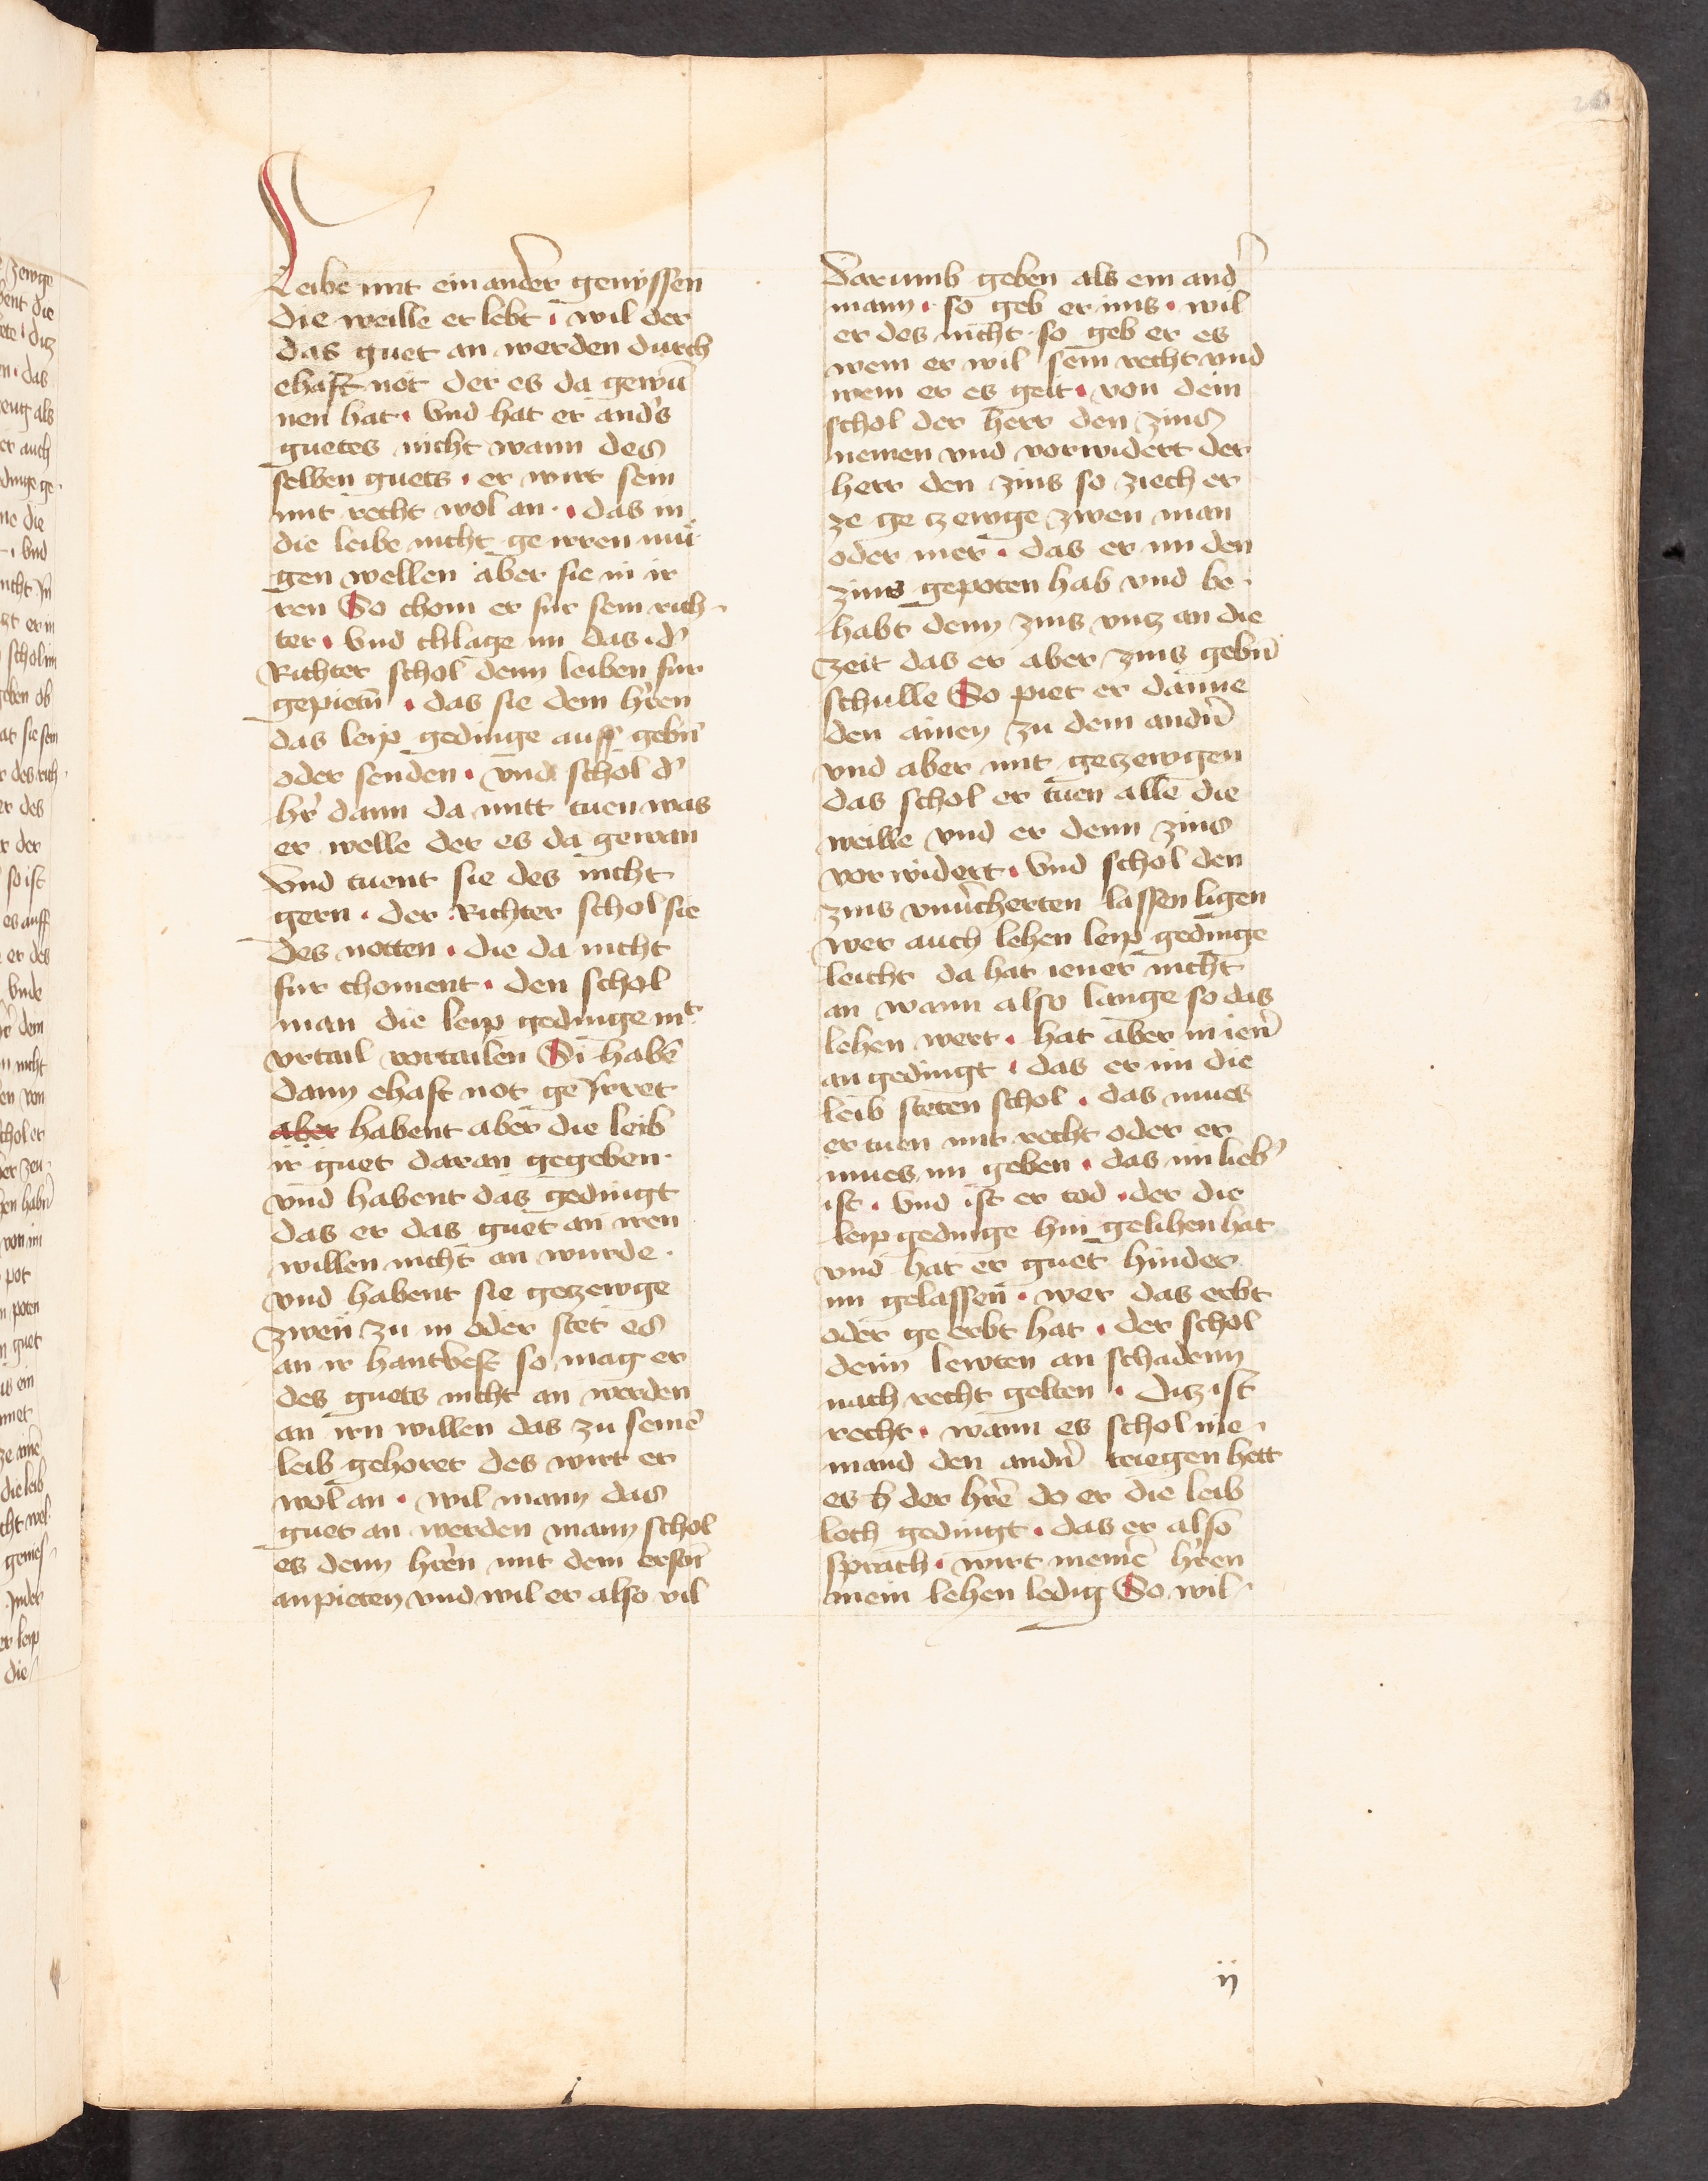 Leibe mit einander genyssen
die weille er lebt · wil der
das guet an werden durch
ehaft not der es da gewū
nen hat · vnd hat er and's
guetes nicht wann des
selben guets · er wirt sein
mit recht wol an · das in
die leibe nicht ge irren mü
gen wellen aber sie in ir
ren So chom er fur sein rich
ter · vnd chlage im das · d'
Richter schol denn leiben fur
gepietn̄ · das sie dem h'ren
das leip gedinge auff gebn̄
oder senden · vnd schol d'
h'r dann da mitt tuen was
er welle der es da gewan
vnd tuent sie des nicht
gern · der Richter schol sie
des notten · die da nicht
fur choment · den schol
man die leip gedinge mit
vrtail vortailen Si habē
dann ehaft not ge irret
aber habent aber die leib
ir guet daran gegeben ·
vnd habent das gedingt
das er das guet an iren
willen nicht an wurde ·
vnd habent sie geczewge
zwen zu in oder stet es
an ir hantvest so mag er
des guets nicht an werden
an irn willen das zu seinē
leib gehoret des wirt er
wol an · wil mann das
guet an werden mann schol
es denn h'ren mit dem ersn̄
anpieten vnd wil er also vil
Darumb geben als ein and'
mann · so geb er ims · wil
er des nicht · so geb er es
wem er wil sein recht vnd
wem er es geit · von dem
schol der herr den zins
nemen vnd vorwidert der
herr den zins so ziech er
ze ge czewge zwen man
oder mer · das er im den
zins gepoten hab vnd be
habt denn zins vncz an die
zeit das er aber zins gebn̄
schulle So piet er danne
den ainen zu dem andn̄
vnd aber mit geczewgen
das schol er tuen alle die
weille vnd er denn zins
vor widert · vnd schol den
zins vnu'cherten lassen ligen
wer auch lehen leip gedinge
leicht da hat iener nicht
an wann also lange so das
lehen wert · hat aber in ien'
an gedingt · das er im die
leib steten schol · das mues
er tuen mit recht oder er
mues im geben · das im lieb'
ist · vnd ist er tod · der die
leip gedinge hin gelihen hat
vnd hat er guet hinder
im gelassen · wer das erbt
oder ge erbt hat · der schol
denn lewten an schadenn
nach recht gelten · ditz ist
recht · wann es schol nie
mand den andn̄ triegen hett
es der h're do er die leib
lech gedingt · das er also
sprach · wirt meinē h'ren
mein lehen ledig So wil
ij